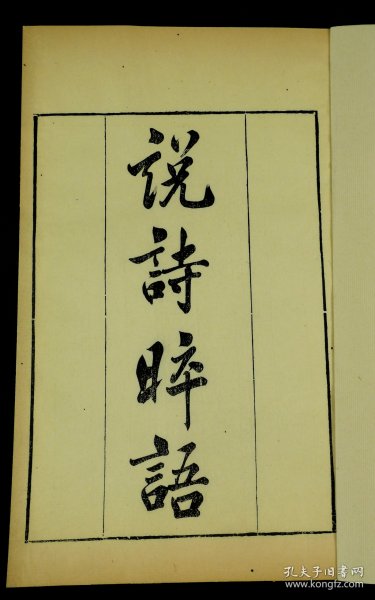 説詩晬語
孔夫子旧书网
www.kongfz.com